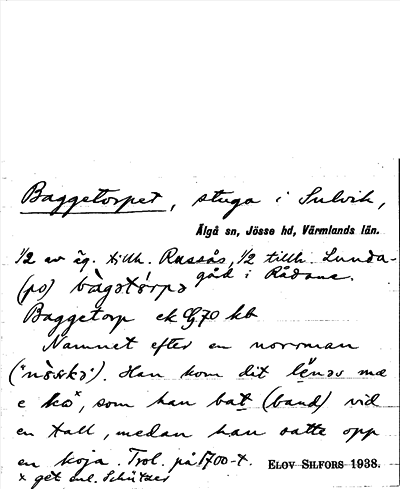 Baggetorpet, stuga i Sulvik,
Älgå sn, Jösse hd, Värmlands län.
1/2 av äg. tillh. Rassås, 1/2 tillh. Lunda-
gård i Rådane.
(på) bàgətórpə
Baggetorp ek G70 kb
Namnet efter en norrman
("nòskə"). Han kom dit mæ
e ko×, som han bat (band) vid
en tall, medan han satte opp
en koja. Trol. på 1700-t.
ELOV SILFORS 1938.
× get enl. Schützer